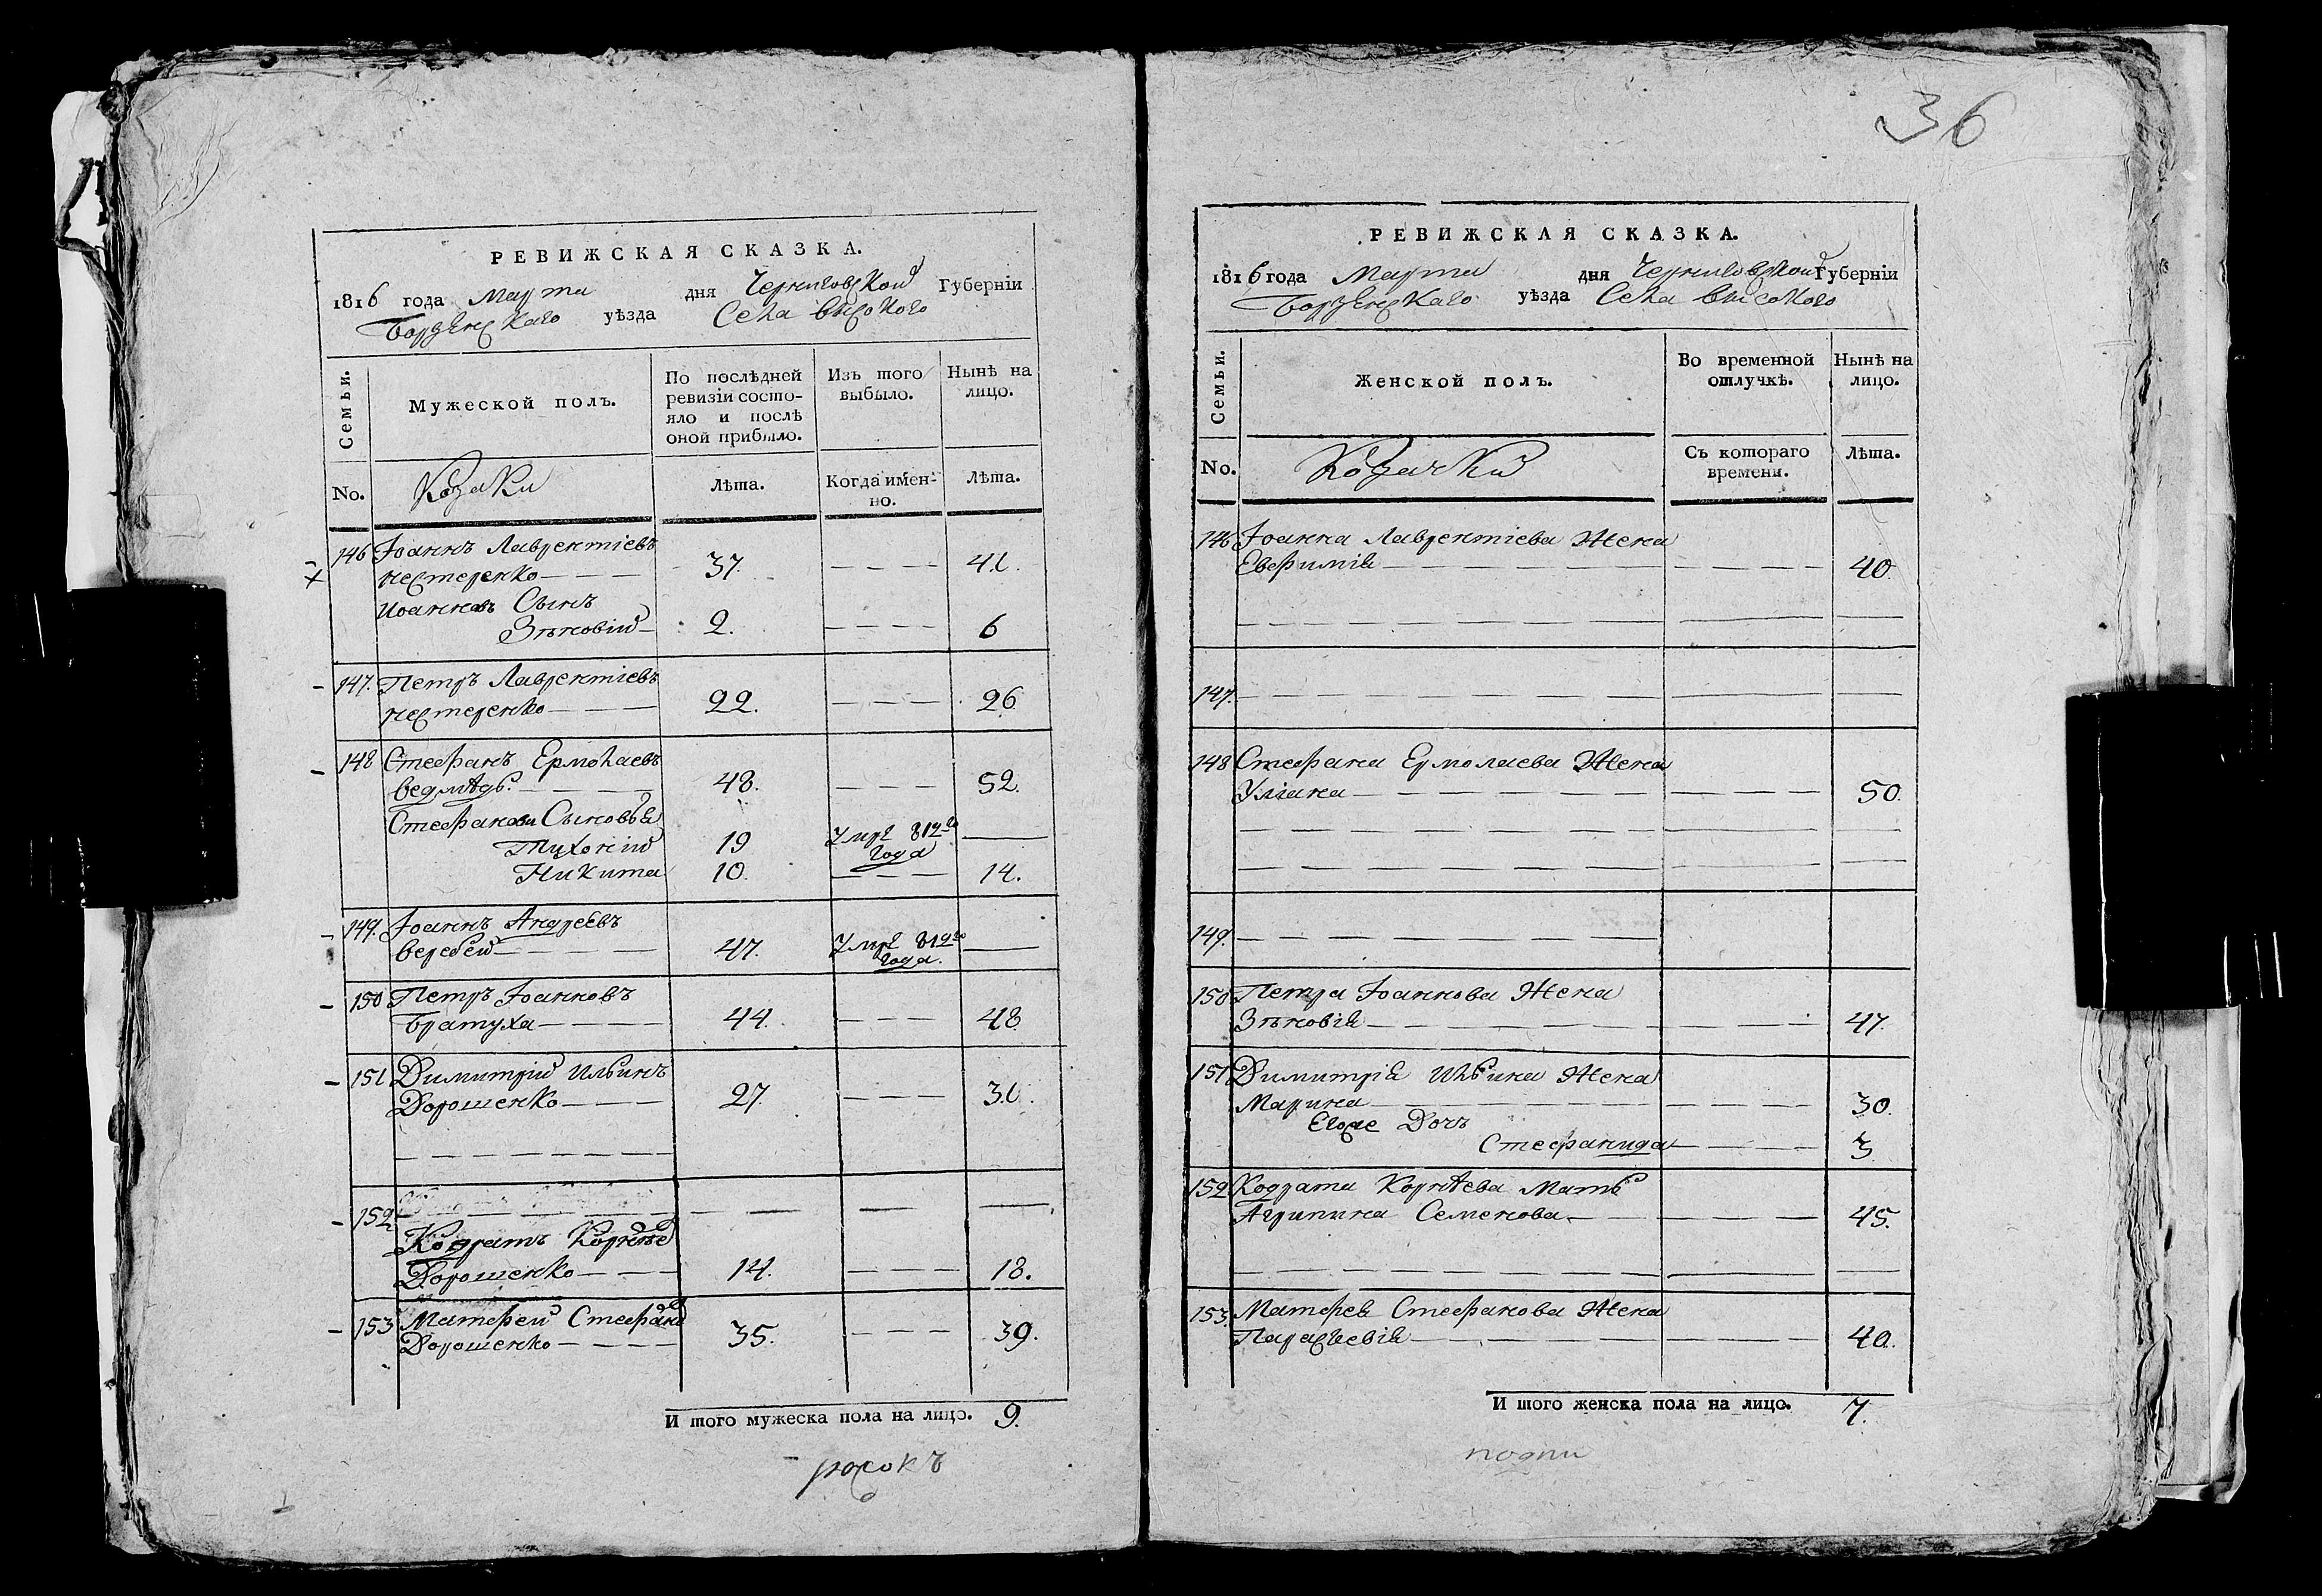 36
РЕВИЖСКАЯ СКАЗКА.
1816 года Марта дня Черниговской Губерніи
Борзенскаго уѣзда Села Высокого
Семьи.
Мужеской полъ.
По послѣдней ревизіи состояло и послѣ оной прибыло.
Изъ того выбыло.
Нынѣ на лицо.
No.
Козаки
Лѣта.
Когда именно.
Лѣта.
146 Іоаннъ Лаврентіевъ
Нестеренко 37. 41.
Иоанновъ Сынъ
Зѣновій 2. 6
147. Петръ Лаврентіевъ
Нестеренко 22. 26
148 Стефанъ Ермолаевъ
Ведмѣдь. 48. 52.
Стефановы Сыновья
Тихоній 19 Умре 812го года
Никита 10. 14.
149. Іоаннъ Андреевъ
Веребей 47. Умре 812го года.
150 Петръ Іоанновъ
Братуха 44. 48.
151 Димитрій Ильинъ
Дорошенко 27 31.
152
Кодратъ Корнѣе
Дорошенко 14. 18.
153 Матфей Стефано
Дорошенко 35. 39.
И того мужеска пола на лицо. 9.
РЕВИЖСКАЯ СКАЗКА.
1816 года Марта дня Черниговской Губерніи
Борзенскаго уѣзда Села Высокого
Семьи.
Женской полъ.
Во временной отлучкѣ.
Нынѣ на лицо.
No.
Козачки
Съ котораго времени.
Лѣта.
146 Іоанна Лаврентіева Жена
Евфимія 40.
147.
148 Стефана Ермолаева Жена
Уліана 50.
149.
150 Петра Іоаннова Жена
Зѣновія 47.
151 Димитрія Ильина Жена
Марина 30.
Егоже Дочъ
Стефанида 3
152 Кодрата Корнѣева Мать
Агрипина Семенова 45.
153. Матфея Стефанова Жена
Параскевія 40.
И того женска пола на лицо. 7.